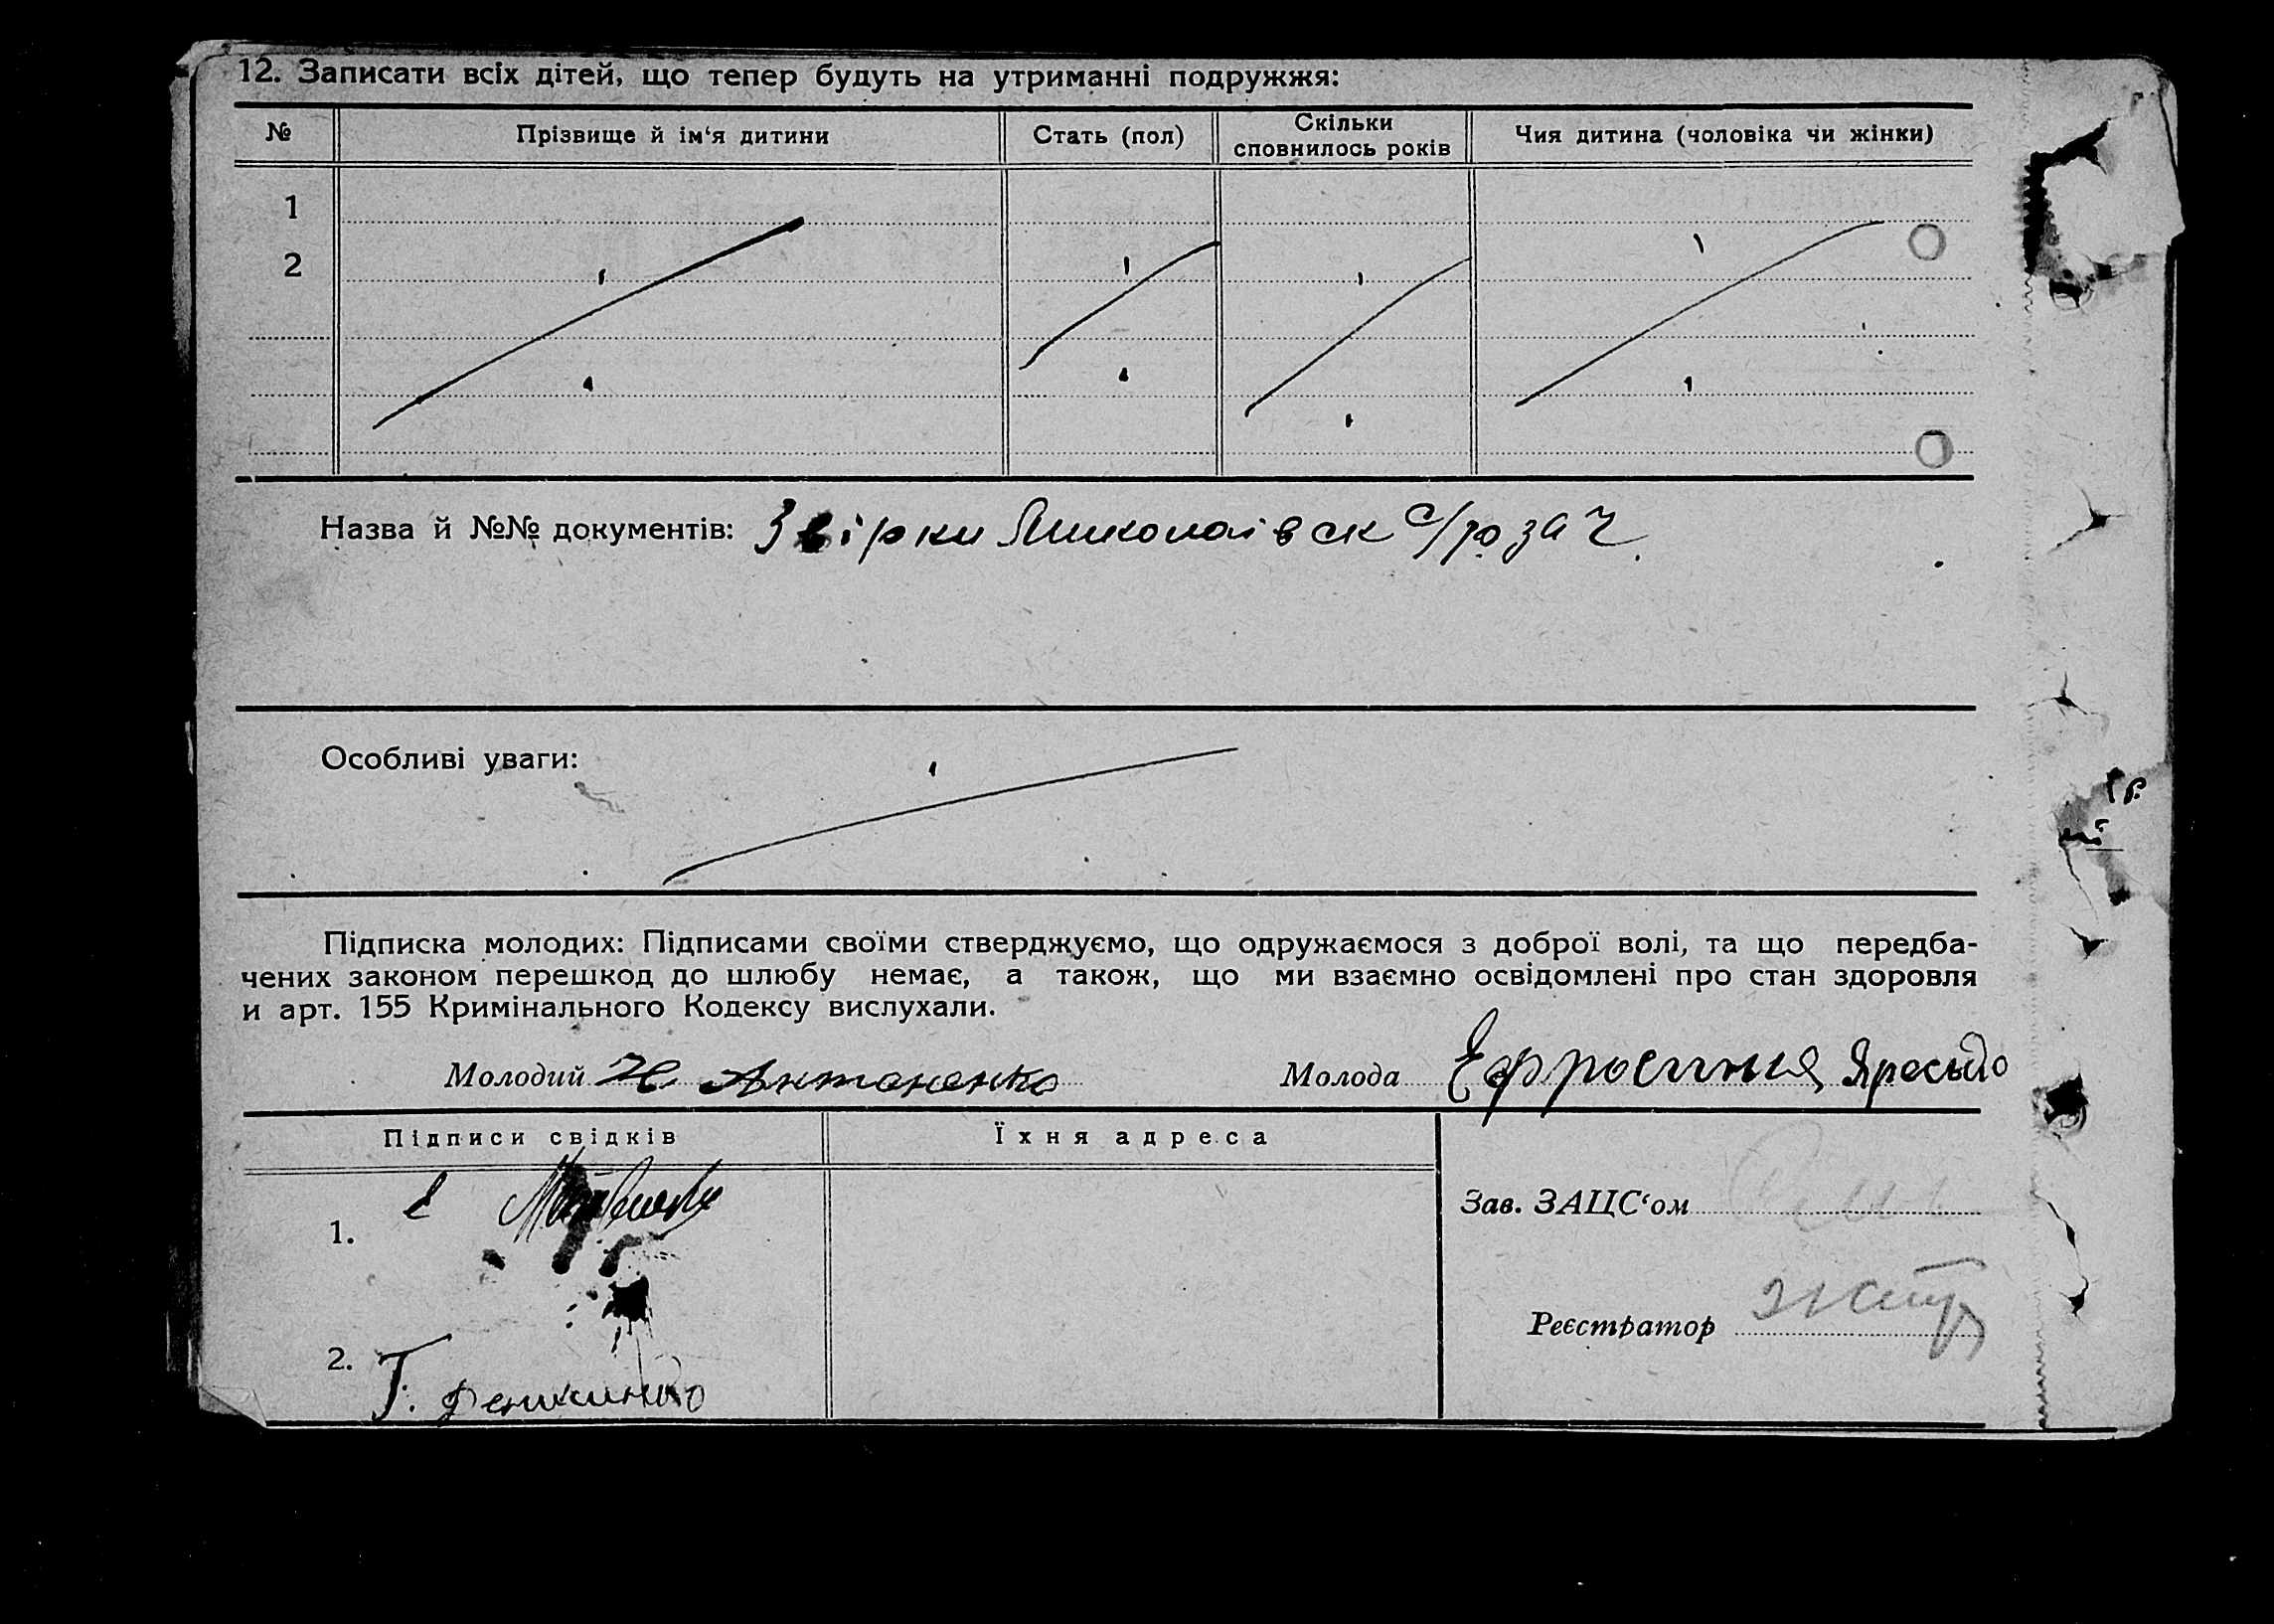 12. Записати всіх дітей, що тепер будуть на утриманні подружжя:
№ Прізвище й ім‘я дитини Стать (пол) Скільки сповнилось років Чия дитина (чоловіка чи жінки)
1
2
Назва й №№ документів: Звірки Миколаівск с/р за ч
Особливі уваги:
Підписка молодих: Підписами своїми стверджуємо, що одружаємося з доброї волі, та що передба-
чених законом перешкод до шлюбу немає, а також, що ми взаємно освідомлені про стан здоровля
и арт. 155 Кримінального Кодексу вислухали.
Молодий Антоненко Молода Ефросиния Яресько
Підписи свідків Їхня адреса
Зав. ЗАЦС‘ом
1.
Реєстратор
2. Г.